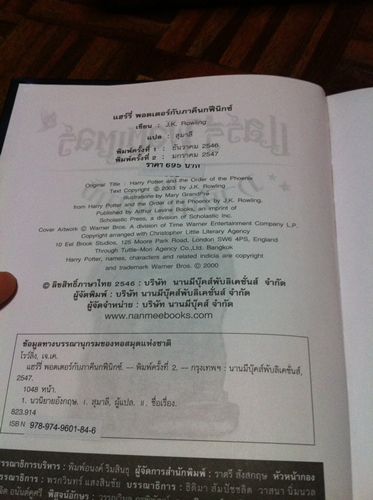 แฮร์รี่ พอตเตอร์กับภาคีนกฟีนิกซ์
เขียน : J.K. Rowling
แปล : สุมาลี
พิมพ์ครั้งที่ 1 : ธันวาคม 2546
พิมพ์ครั้งที่ 2 : มกราคม 2547
ราคา 695 บาท
Original Title : Harry Potter and the Order of the Phoenix
Text Copyright © 2003 by J.K. Rowling
Illustrations by Mary GrandPré
from Harry Potter and the Order of the Phoenix by J.K. Rowling.
Published by Arthur Levine Books, an imprint of
Scholastic Press, a division of Scholastic Inc.
Cover Artwork © Warner Bros. A division of Time Warner Entertainment Company L.P.
Copyright arranged with Christopher Little Literary Agency
10 Eel Brook Studios, 125 Moore Park Road, London SW6 4PS, England
Through Tuttle-Mori Agency Co.,Ltd. Bangkok
Harry Potter, names, characters and related indicia are copyright
and trademark Warner Bros. © 2000
© ลิขสิทธิ์ภาษาไทย 2546 : บริษัท นานมีบุ๊คส์พับลิเคชั่นส์ จำกัด
ผู้จัดพิมพ์ : บริษัท นานมีบุ๊คส์พับลิเคชั่นส์ จำกัด
ผู้จัดจำหน่าย : บริษัท นานมีบุ๊คส์พับลิเคชั่นส์ จำกัด
www.nanmeebooks.com
ข้อมูลทางบรรณานุกรมของหอสมุดแห่งชาติ
โรว์ลิ่ง, เจ.เค.
แฮร์รี่ พอตเตอร์กับภาคีนกฟีนิกซ์. -- พิมพ์ครั้งที่ 2. -- กรุงเทพฯ : นานมีบุ๊คส์พับลิเคชั่นส์,
2547.
1048 หน้า.
1. นวนิยายอังกฤษ. I. สุมาลี, ผู้แปล. II. ชื่อเรื่อง.
823.914
ISBN 978-974-9601-84-6
บรรณาธิการบริหาร : พิมพ์อนงค์ ริมสินธุ ผู้จัดการสำนักพิมพ์ : ราตรี สังสกฤษ หัวหน้ากอง
บรรณาธิการ : พรกวินทร์ แสงสินชัย บรรณาธิการ : ธิติมา สัมปัชชลิต วาสนา
พิสูจน์อักษร :